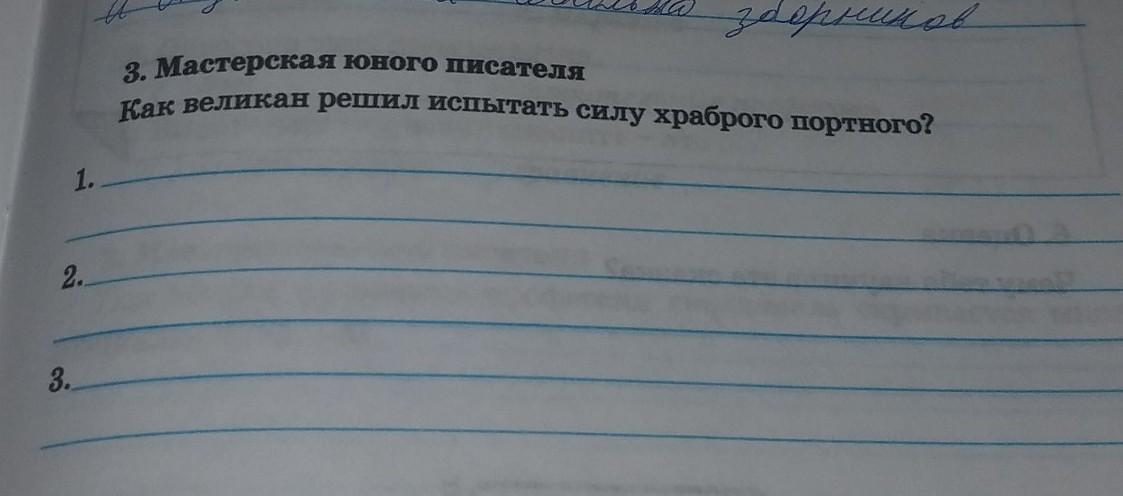 зборников
3. Мастерская юного писателя
Как великан решил испытать силу храброго портного?
1.
2.
3.